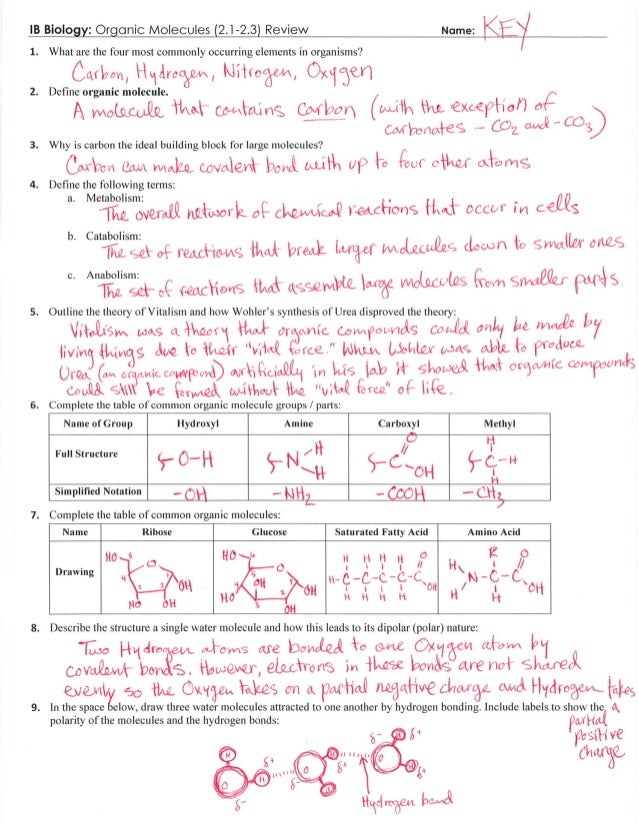 IB Biology: Organic Molecules (2.1-2.3) Review Name: KEY
1. What are the four most commonly occurring elements in organisms?
Carbon, Hydrogen, Nitrogen, Oxygen
2. Define organic molecule.
A molecule that contains Carbon (with the exception of
carbonates - CO2 and -CO3)
3. Why is carbon the ideal building block for large molecules?
Carbon can make covalent bond with up to four other atoms
4. Define the following terms:
a. Metabolism:
The overall network of chemical reactions that occur in cells
b. Catabolism:
The set of reactions that break larger molecules down to smaller ones
c. Anabolism:
The set of reactions that assemble large molecules from smaller parts.
5. Outline the theory of Vitalism and how Wohler's synthesis of Urea disproved the theory:
Vitalism was a theory that organic compounds could only be made by
living things due to their "vital force." When Wohler was able to produce
Urea (an organic compound) artificially in his lab it showed that organic compounds
could still be formed without the "vital force" of life.
6. Complete the table of common organic molecule groups / parts:
Name of Group Hydroxyl Amine Carboxyl Methyl
Full Structure
O-H
N
H
H
C
O
OH
H
C-H
H
Simplified Notation -OH -NH2 -COOH -CH3
7. Complete the table of common organic molecules:
Name Ribose Glucose Saturated Fatty Acid Amino Acid
Drawing
HO 5 O 4 1 3 2 OH HO OH
HO 6 5 O 4 OH 1 OH HO 3 2 OH
H H H H O
H-C-C-C-C-C
OH
H H H H
H R O
N-C-C
H H OH
8. Describe the structure a single water molecule and how this leads to its dipolar (polar) nature:
Two Hydrogen atoms are bonded to one Oxygen atom by
covalent bonds. However, electrons in these bonds are not shared
evenly so the Oxygen takes on a partial negative charge and Hydrogen takes
a partial positive charge
9. In the space below, draw three water molecules attracted to one another by hydrogen bonding. Include labels to show the
polarity of the molecules and the hydrogen bonds:
δ- H δ+
H δ+ O δ+ O H
O H δ-
δ-
Hydrogen bond